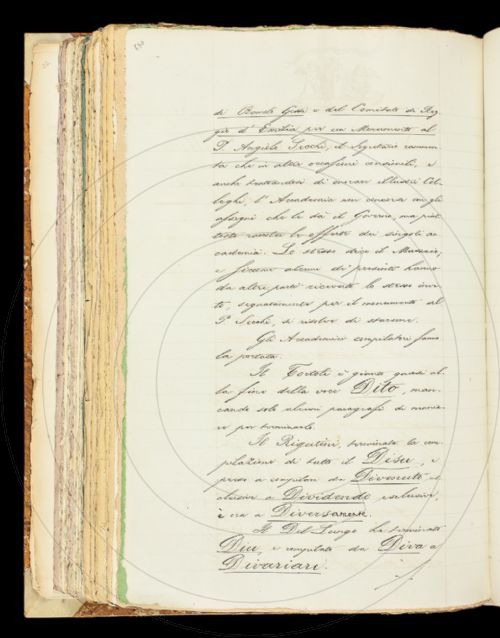 di Benedetto Gioli e del Comitato di Reg
gio d'Emilia per un Monumento al
P. Angelo Secchi, il Segretario rammen
ta che in altre occasioni consimili, e
anche trattandosi di onorare illustri Col
leghi, l'Accademia non concorse con gli
assegni che le dà il Governo, ma piut
tosto raccolse le offerte dei singoli ac
cademici. Lo stesso dice il
e siccome alcuni di presenti hanno
da altre parti ricevuto lo stesso invi
to, segnatamente per il monumento al
P. Secchi, si risolve di
Gli Accademici compilatori fanno
la portata.
Il Tortoli è giunto quasi al
la fine della voce Dito, man
cando solo alcuni paragrafi di manie
re per terminarla.
Il Rigutini, terminata la com
pilazione di tutto il Disu, e
prese a compilare da Divenuto
a Dividendo esclusive,
è ora a Diversamente.
Il Del Lungo ha terminato
Diu, e compilato da Diva a
Divariari.